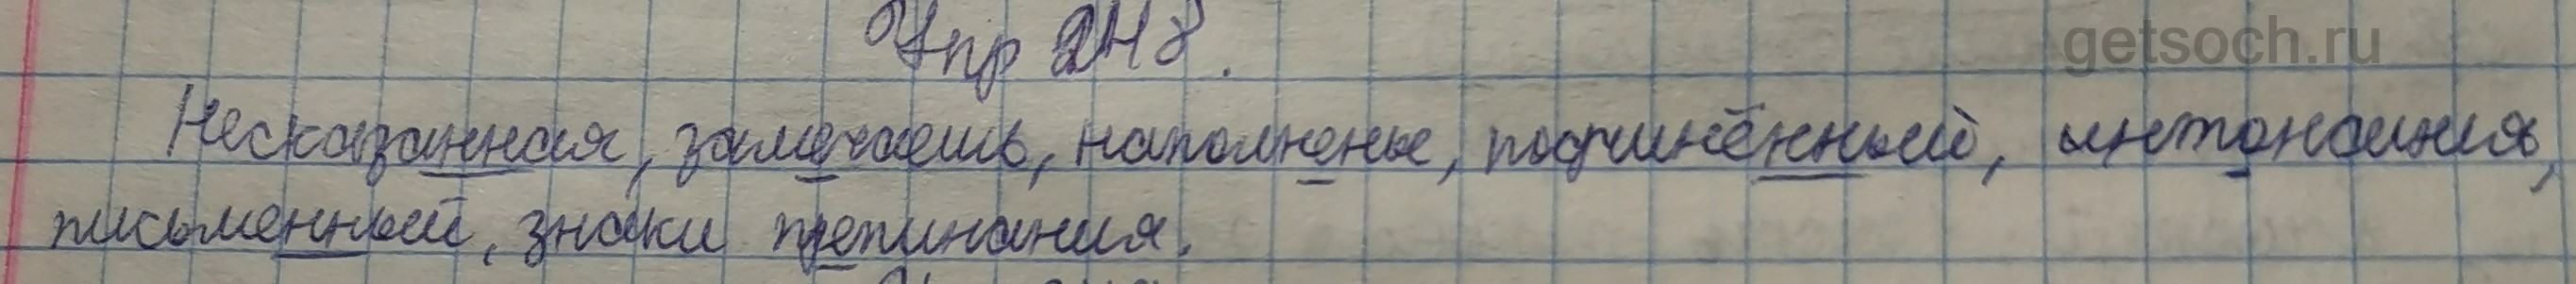 Упр 248.
getsoch.ru
Несказанная, замечаешь, наполненье, подчинённый, интонация,
письменный, знаки препинания.